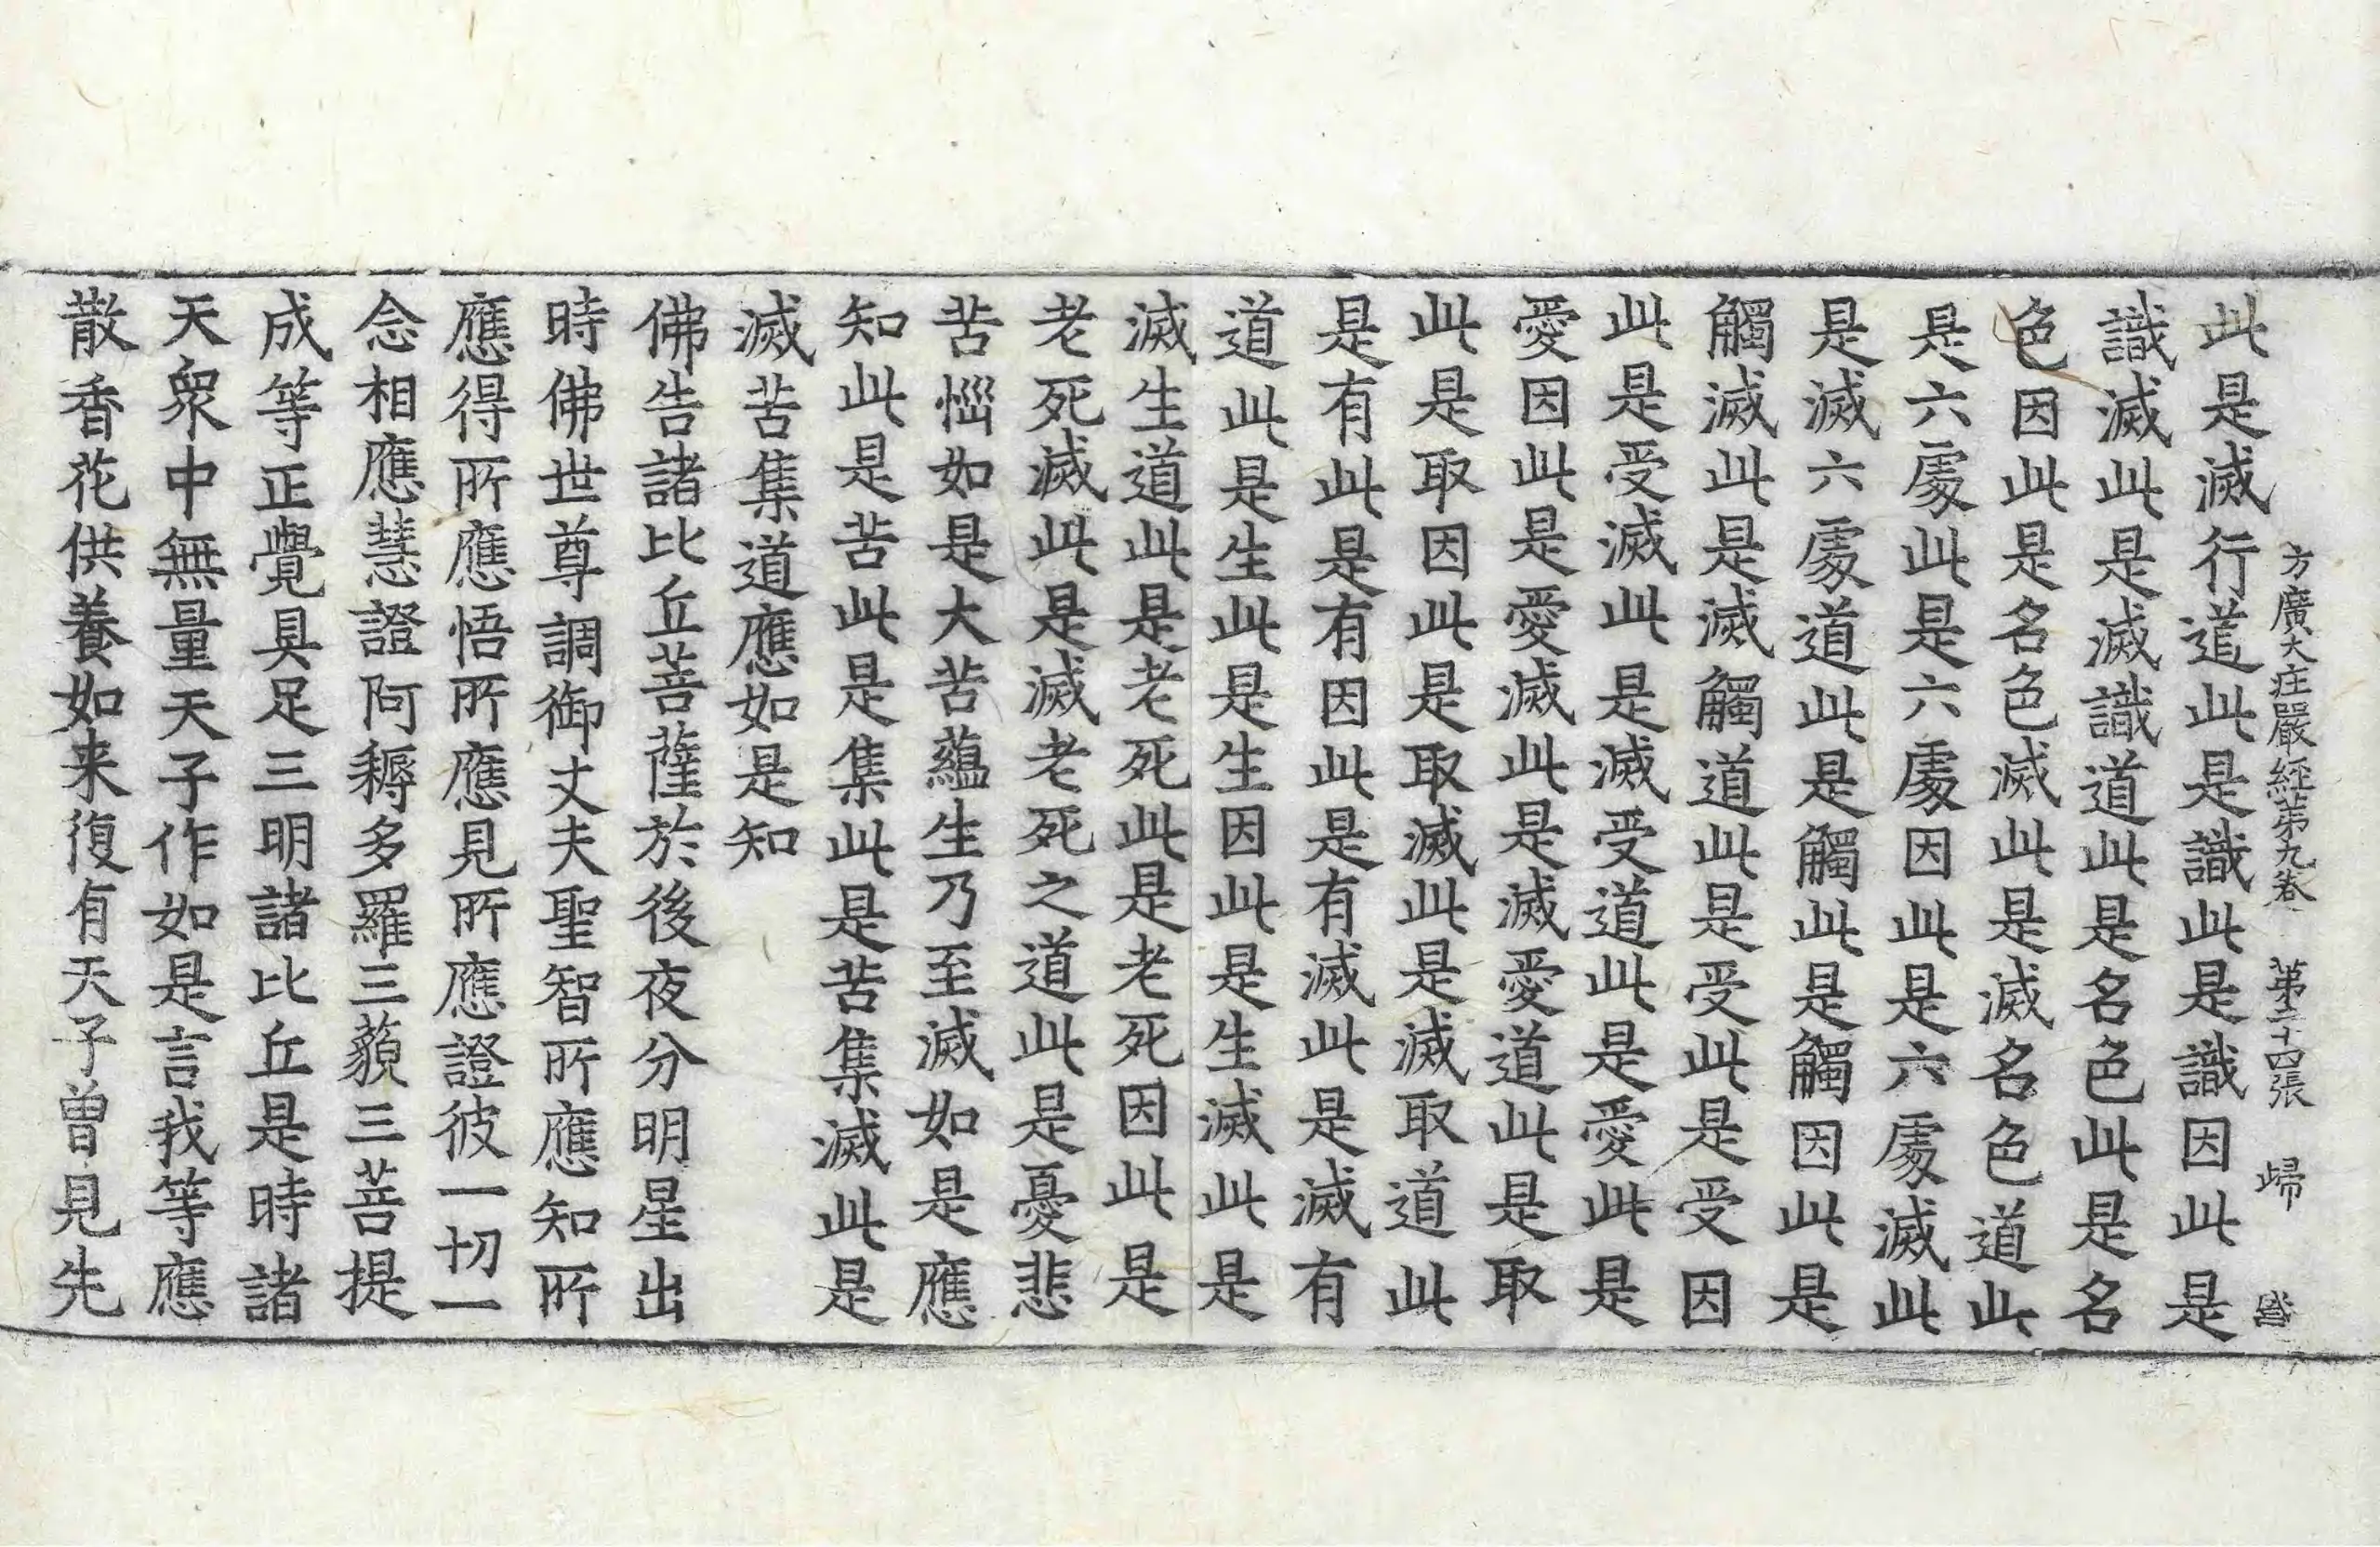 方廣大庄嚴經第九卷　第二十四張　歸
此是滅行道此是識此是識因此是
識滅此是滅識道此是名色此是名
色因此是名色滅此是滅名色道此
是六處此是六處因此是六處滅此
是滅六處道此是觸此是觸因此是
觸滅此是滅觸道此是受此是受因
此是受滅此是滅受道此是愛此是
愛因此是愛滅此是滅愛道此是取
此是取因此是取滅此是滅取道此
是有此是有因此是有滅此是滅有
道此是生此是生因此是生滅此是
滅生道此是老死此是老死因此是
老死滅此是滅老死之道此是憂悲
苦惱如是大苦蘊生乃至滅如是應
知此是苦此是集此是苦集滅此是
滅苦集道應如是知
佛告諸比丘菩薩於後夜分明星出
時佛世尊調御丈夫聖智所應知所
應得所應悟所應見所應證彼一切一
念相應慧證阿耨多羅三藐三菩提
成等正覺具足三明諸比丘是時諸
天衆中無量天子作如是言我等應
散香花供養如来復有天子曾見先